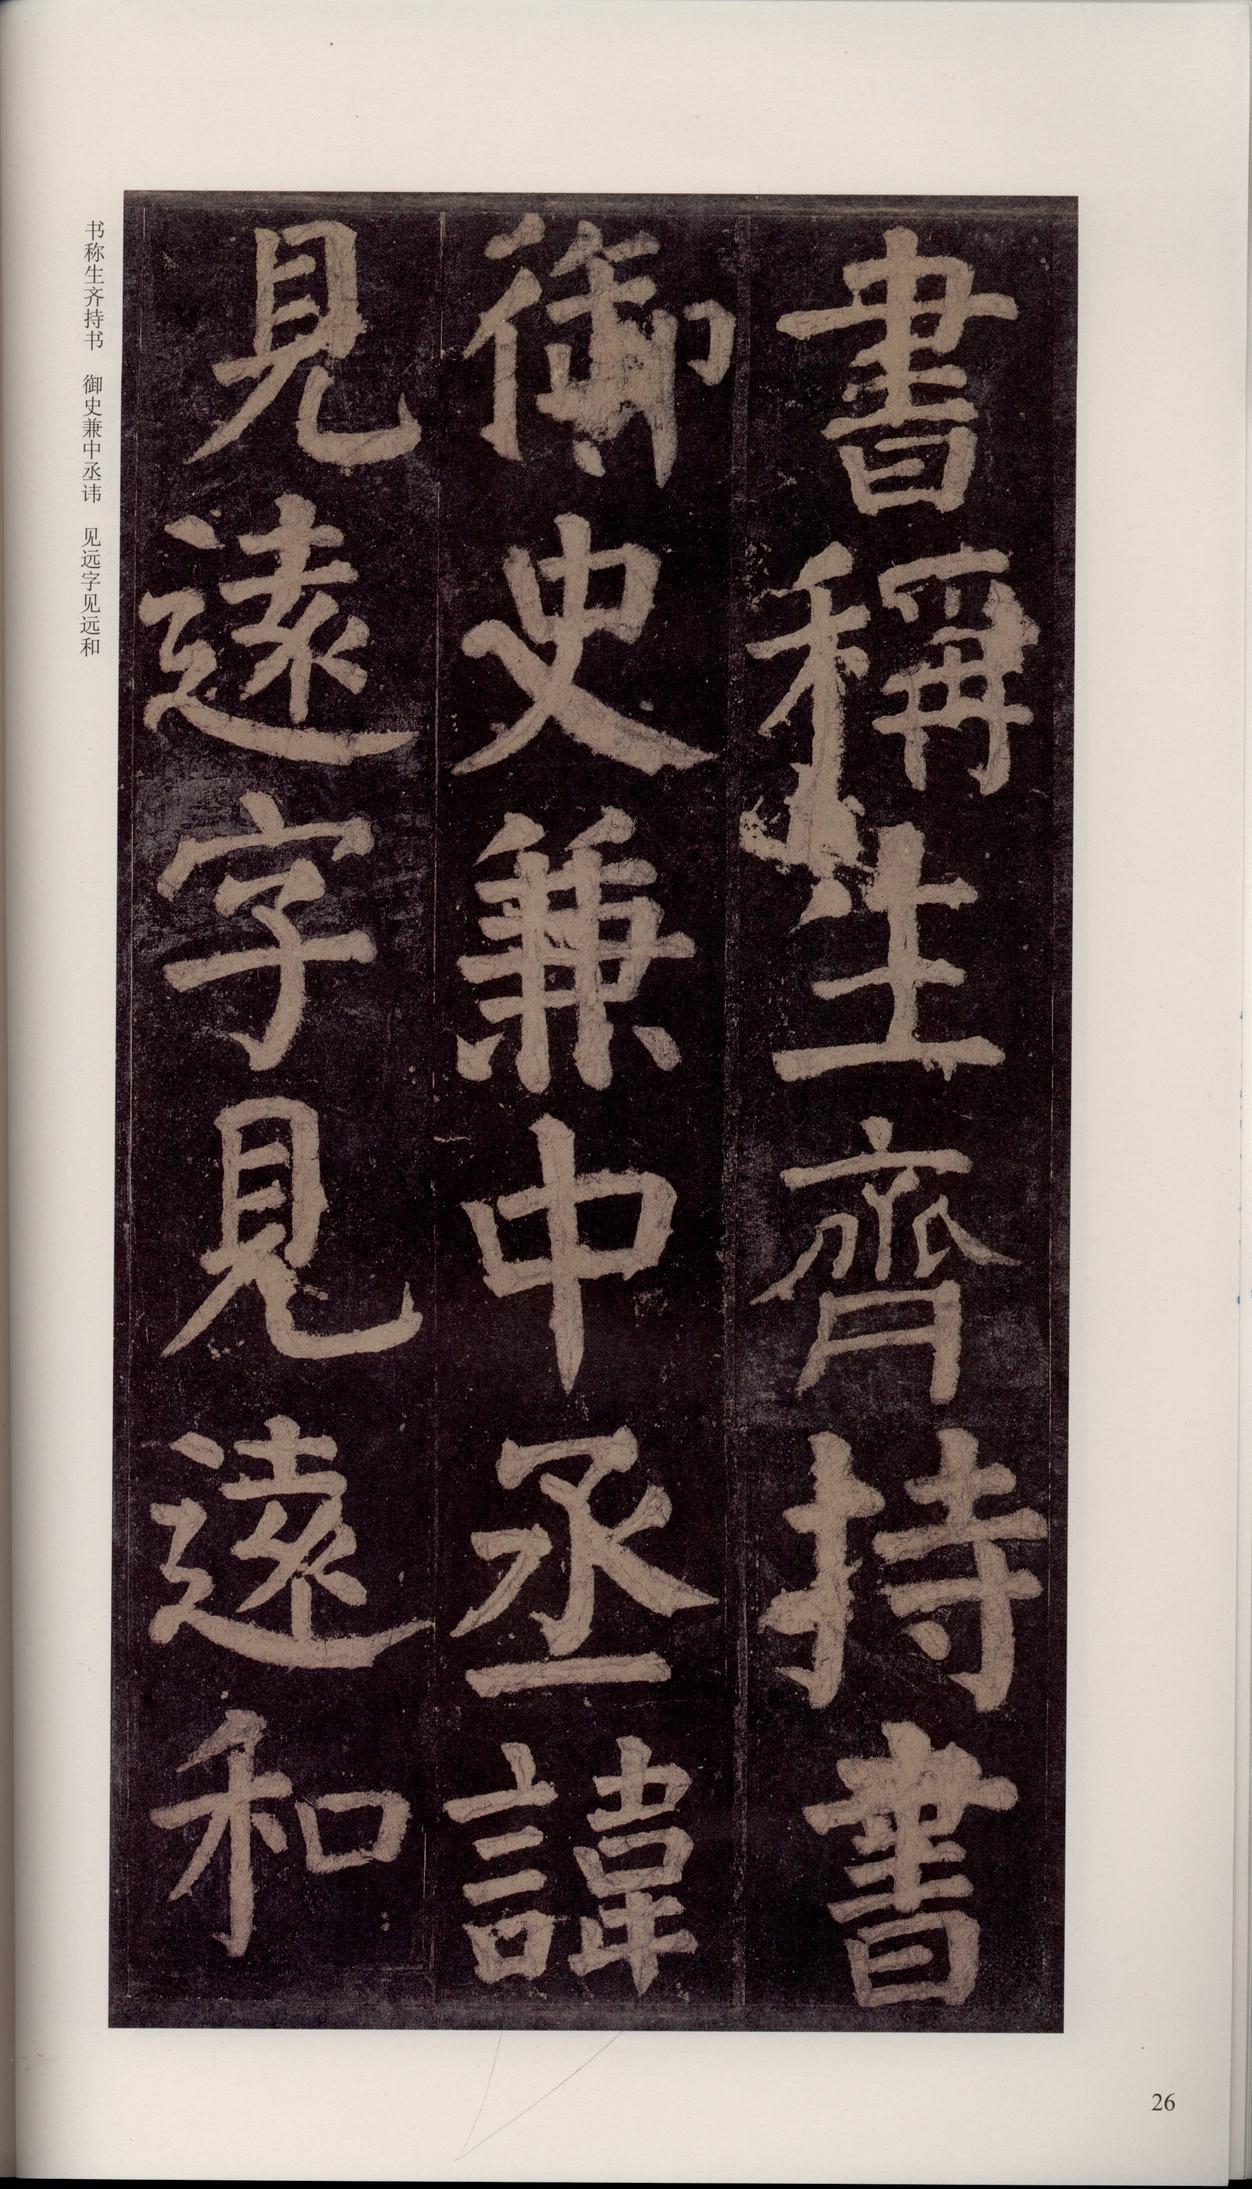 書稱生齊持書
御史兼中丞諱
見遠字見遠和
书称生齐持书 御史兼中丞讳 见远字见远和
26